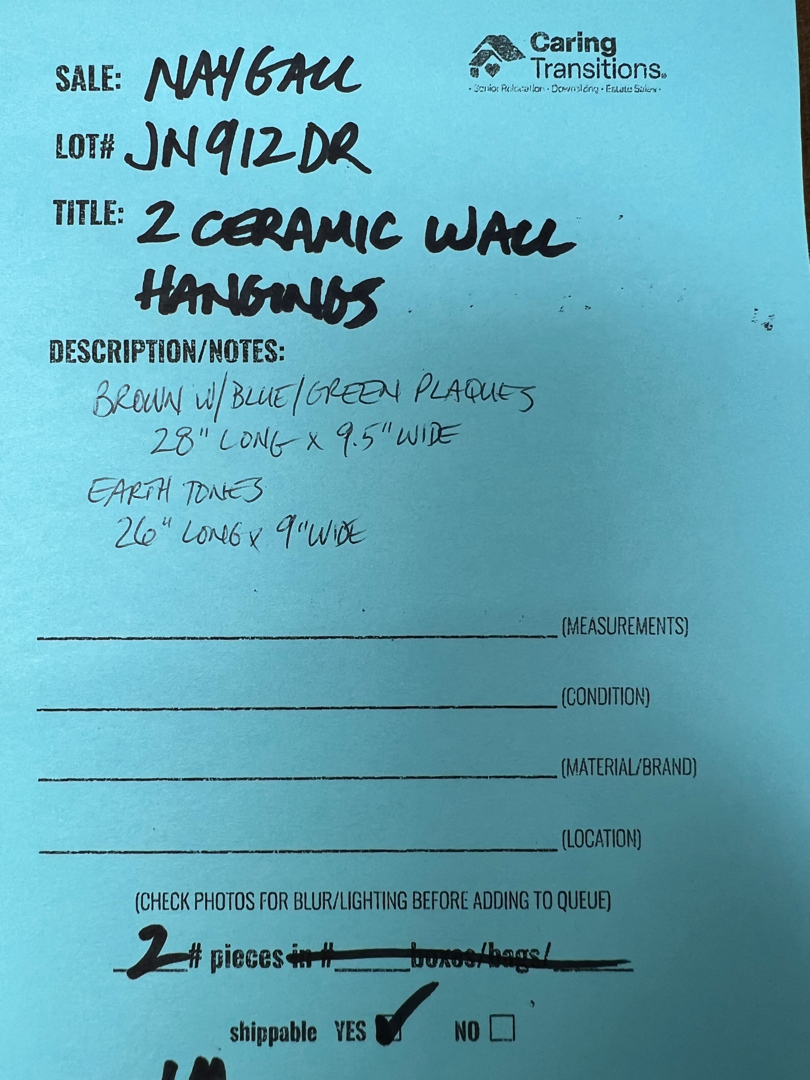 Caring
Transitions®
• Senior Relocation • Downsizing • Estate Sales •
SALE: NAYGALL
LOT# JN912DR
TITLE: 2 CERAMIC WALL
HANGINGS
DESCRIPTION/NOTES:
BROWN W/BLUE/GREEN PLAQUES
28" LONG X 9.5" WIDE
EARTH TONES
26" LONG X 9" WIDE
(MEASUREMENTS)
(CONDITION)
(MATERIAL/BRAND)
(LOCATION)
(CHECK PHOTOS FOR BLUR/LIGHTING BEFORE ADDING TO QUEUE)
2 # pieces in # boxes/bags/
shippable YES NO